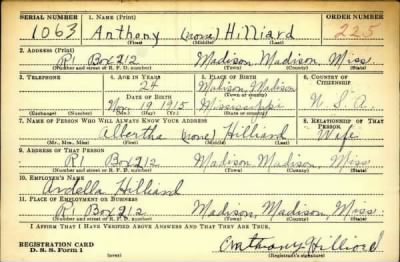 SERIAL NUMBER 1. NAME (Print) ORDER NUMBER
1063 Anthony (none) Hilliard 225
(First) (Middle) (Last)
2. ADDRESS (Print)
R1 Box 212 Madison, Madison, Miss.
(Number and street or R. F. D. number) (Town) (County) (State)
3. TELEPHONE 4. AGE IN YEARS 5. PLACE OF BIRTH 6. COUNTRY OF CITIZENSHIP
24 Madison, Madison
DATE OF BIRTH (Town or county)
Nov. 19 1915 Mississippi U.S.A.
(Exchange) (Number) (Mo.) (Day) (Yr.) (State or country)
7. NAME OF PERSON WHO WILL ALWAYS KNOW YOUR ADDRESS 8. RELATIONSHIP OF THAT PERSON
Albertha (none) Hilliard Wife
(Mr., Mrs., Miss) (First) (Middle) (Last)
9. ADDRESS OF THAT PERSON
R1 Box 212 Madison, Madison, Miss
(Number and street or R. F. D. number) (Town) (County) (State)
10. EMPLOYER'S NAME
Ardella Hilliard
11. PLACE OF EMPLOYMENT OR BUSINESS
R1 Box 212 Madison, Madison, Miss.
(Number and street or R. F. D. number) (Town) (County) (State)
I AFFIRM THAT I HAVE VERIFIED ABOVE ANSWERS AND THAT THEY ARE TRUE.
REGISTRATION CARD
D. S. S. Form 1 Anthony Hilliard
(over) (Registrant's signature)